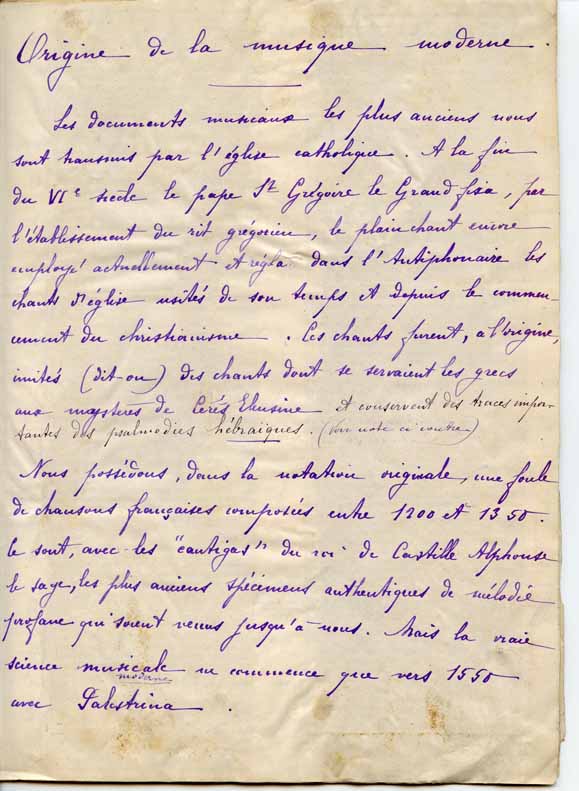 Origine de la musique moderne.
Les documents musicaux les plus anciens nous
sont transmis par l'église catholique. A la fin
du VIe siècle le pape St Grégoire le Grand fixa, par
l'établissement du rit grégorien, le plain chant encore
employé actuellement et régla dans l'Antiphonaire les
chants d'église usités de son temps et depuis le commen-
cement du christianisme. Ces chants furent, à l'origine,
imités (dit on) des chants dont se servaient les grecs
aux mystères de Cerès Eleusine et conservent des traces impor-
tantes des psalmodies hébraïques. (Voir note ci contre)
Nous possédons, dans la notation originale, une foule
de chansons françaises composées entre 1200 et 1350.
Ce sont, avec les "cantigas" du roi de Castille Alphonse
le sage, les plus anciens spécimens authentiques de mélodie
profane qui soient venus jusqu'à nous. Mais la vraie
science musicale ne commence que vers 1550
moderne
avec Palestrina.